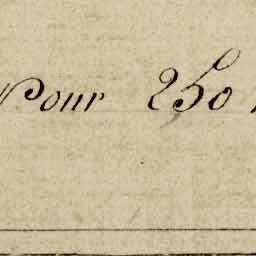 Pour 250